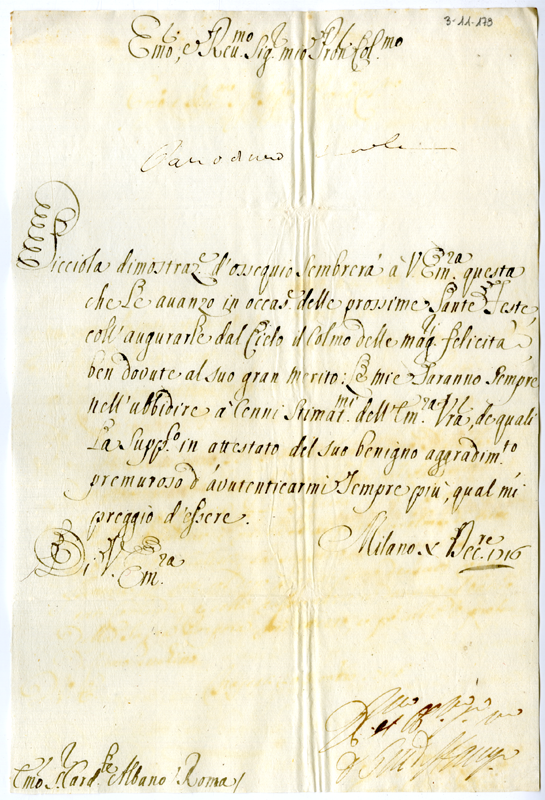 3-11-179
Emo, e Reu.mo Sig.r mio Pron Col.mo
Picciola dimostraz.e d'ossequio sembrerà à V Em.ra questa
che Le auanzo in occas.e delle prossime Sante Feste,
coll'augurarLe dal Cielo il Colmo delle mag.ri felicità
ben dovute al suo gran merito; Le mie saranno sempre
nell'ubbidire a Cenni Stimat.mi dell'Em.ra Vra, de quali
La Supp.co in attestato del suo benigno aggradim.to
premuroso d'avutenticarmi sempre più, qual mi
preggio d'essere.
Di V. Em.ra
Milano X Dec.re 1716
Emo S. Card.le Albano / Roma /